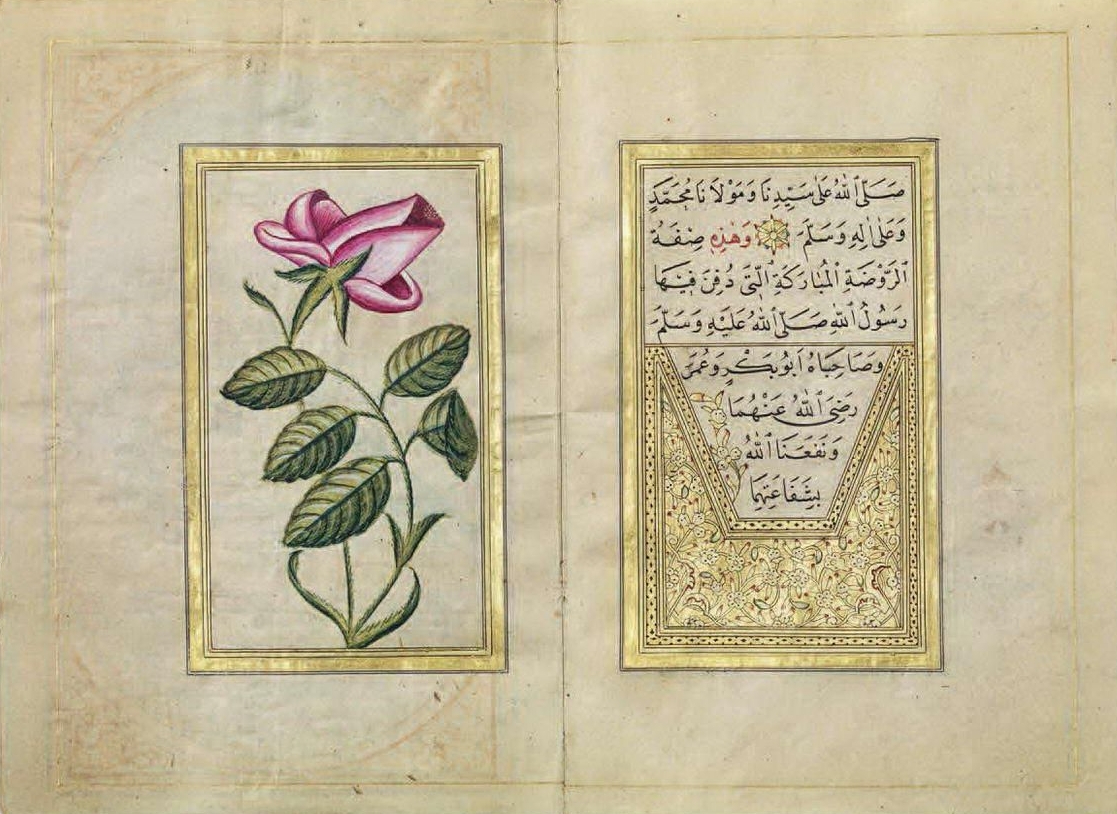 صَلَّى ٱللهُ عَلٰى سَيِّدِنَا وَمَوْلَانَا مُحَمَّدٍ
وَعَلٰى اٰلِهِ وَسَلَّمَ وَهٰذِهِ صِفَةُ
ٱلرَّوْضَةِ ٱلْمُبَارَكَةِ ٱلَّتِي دُفِنَ فِيهَا
رَسُولُ ٱللهِ صَلَّى ٱللهُ عَلَيْهِ وَسَلَّمَ
وَصَاحِبَاهُ اَبُوبَكْرٍ وَعُمَرَ
رَضِيَ ٱللهُ عَنْهُمَا
وَنَفَعَنَا ٱللهُ
بِشَفَاعَتِهِمَا